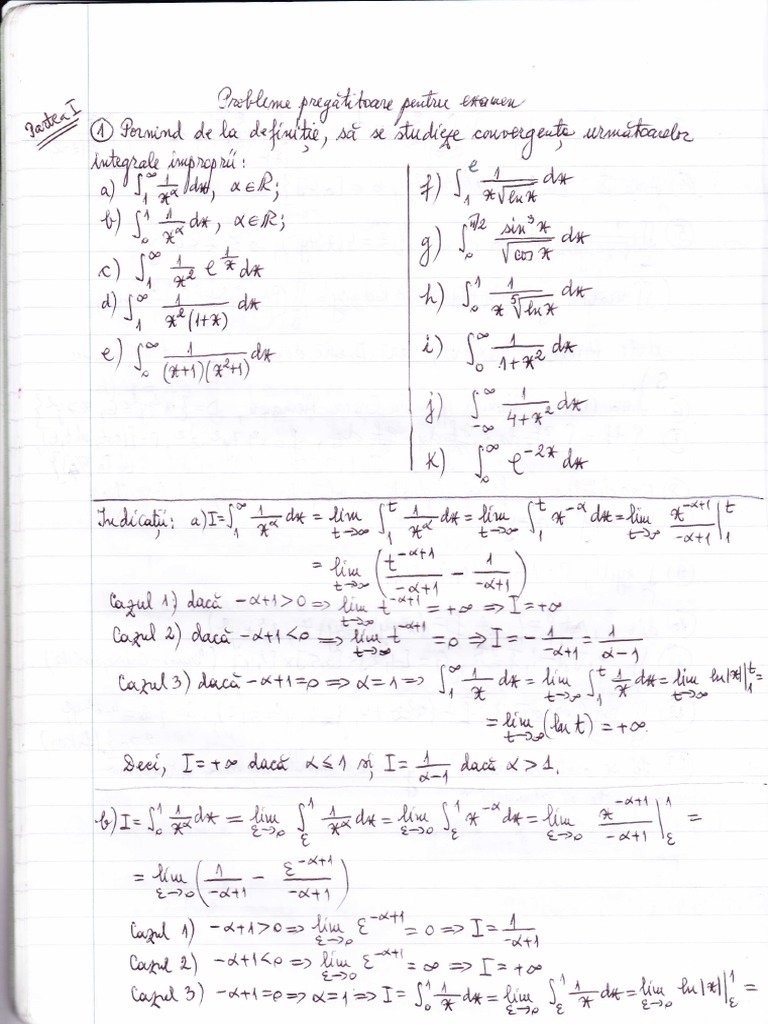 Probleme pregătitoare pentru examen
Partea I
① Pornind de la definiție, să se studieze convergența următoarelor
integrale improprii:
a) ∫₁^∞ 1/x^α dx, α∈ℝ;
b) ∫₀^1 1/x^α dx, α∈ℝ;
c) ∫₁^∞ 1/x² e^(1/x) dx
d) ∫₁^∞ 1/(x²(1+x)) dx
e) ∫₀^∞ 1/((x+1)(x²+1)) dx
f) ∫₁^e 1/(x√(ln x)) dx
g) ∫₀^(π/2) sin³x/√(cos x) dx
h) ∫₀^1 1/(x ⁵√(ln x)) dx
i) ∫₀^∞ 1/(1+x²) dx
j) ∫_(-∞)^∞ 1/(4+x²) dx
k) ∫₀^∞ e^(-2x) dx
Indicații: a) I=∫₁^∞ 1/x^α dx = lim_(t→∞) ∫₁^t 1/x^α dx = lim_(t→∞) ∫₁^t x^(-α) dx = lim_(t→∞) x^(-α+1)/(-α+1) |₁^t
= lim_(t→∞) (t^(-α+1)/(-α+1) - 1/(-α+1))
Cazul 1) dacă -α+1>0 ⇒ lim_(t→∞) t^(-α+1) = +∞ ⇒ I=+∞
Cazul 2) dacă -α+1<0 ⇒ lim_(t→∞) t^(-α+1) = 0 ⇒ I = - 1/(-α+1) = 1/(α-1)
Cazul 3) dacă -α+1=0 ⇒ α=1 ⇒ ∫₁^∞ 1/x dx = lim_(t→∞) ∫₁^t 1/x dx = lim_(t→∞) ln|x| |₁^t =
= lim_(t→∞) (ln t) = +∞.
Deci, I=+∞ dacă α≤1 și I = 1/(α-1) dacă α>1.
b) I=∫₀^1 1/x^α dx = lim_(ε→0) ∫_ε^1 1/x^α dx = lim_(ε→0) ∫_ε^1 x^(-α) dx = lim_(ε→0) x^(-α+1)/(-α+1) |_ε^1 =
= lim_(ε→0) (1/(-α+1) - ε^(-α+1)/(-α+1))
Cazul 1) -α+1>0 ⇒ lim_(ε→0) ε^(-α+1) = 0 ⇒ I = 1/(-α+1)
Cazul 2) -α+1<0 ⇒ lim_(ε→0) ε^(-α+1) = ∞ ⇒ I=+∞
Cazul 3) -α+1=0 ⇒ α=1 ⇒ I=∫₀^1 1/x dx = lim_(ε→0) ∫_ε^1 1/x dx = lim_(ε→0) ln|x| |_ε^1 =